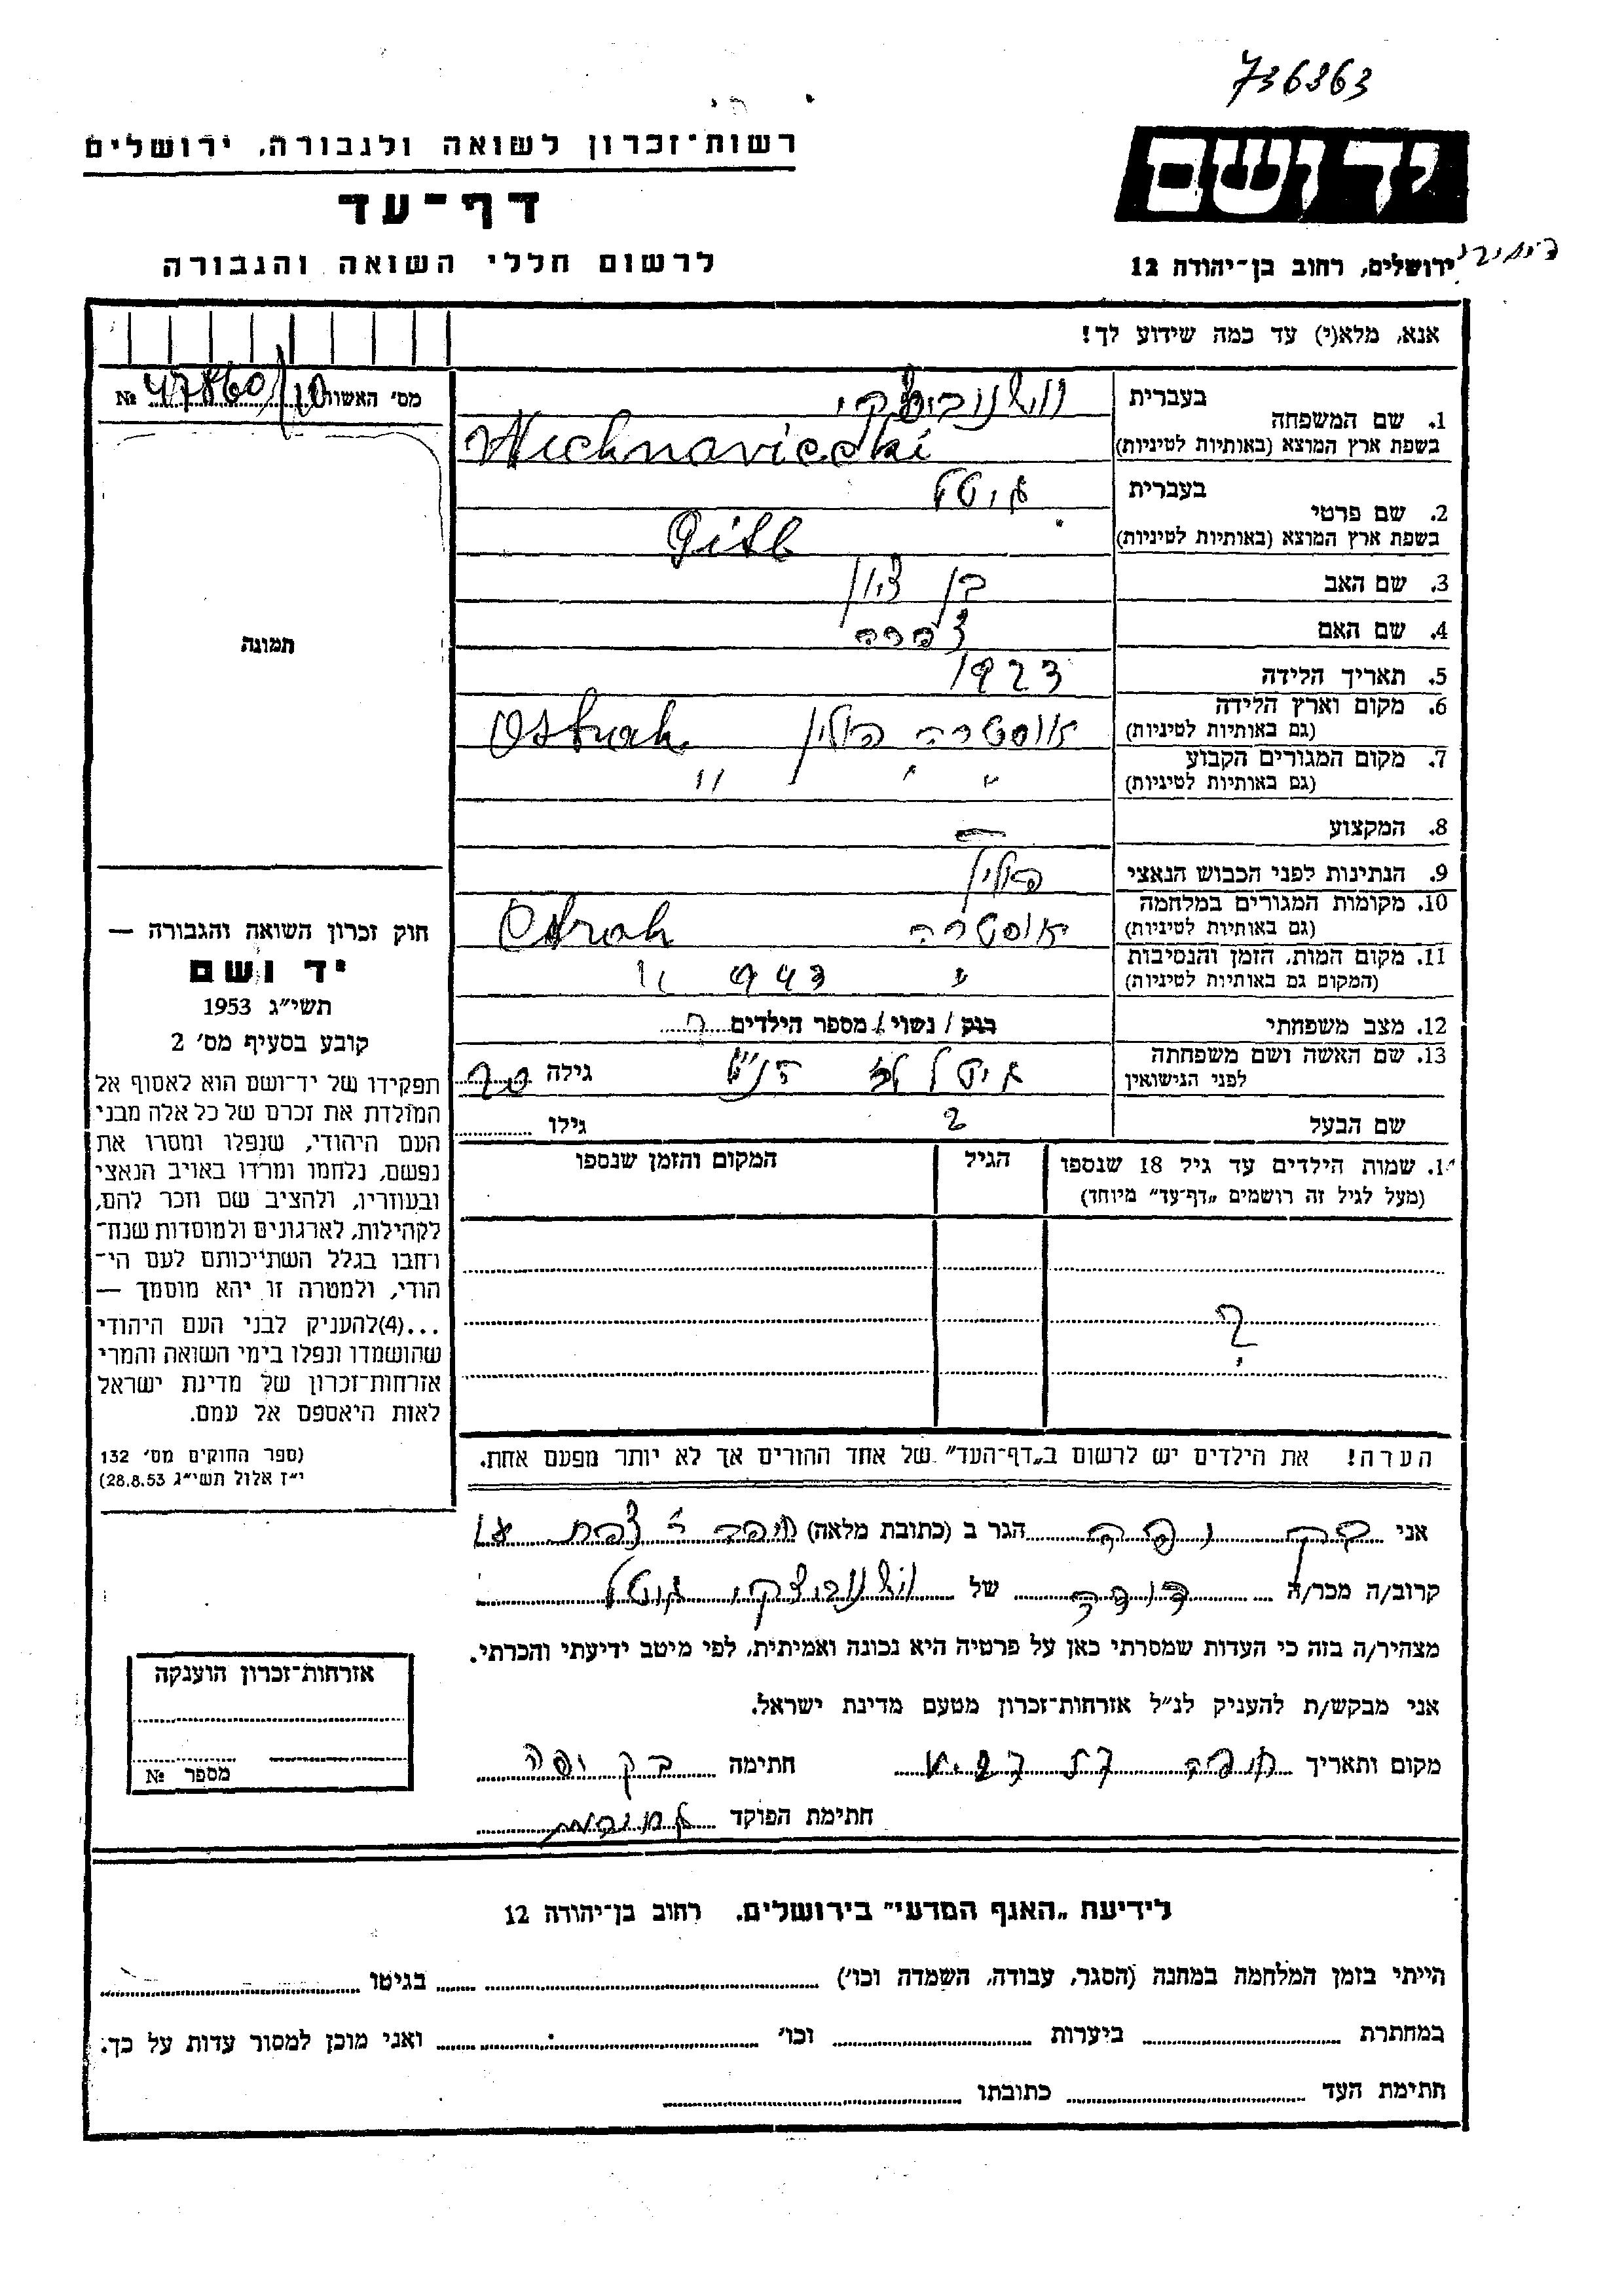 736363
רשות־זכרון לשואה ולגבורה, ירושלים
דף־עד
לרשום חללי השואה והגבורה
ידושם
ירושלים, רחוב בן־יהודה 12
אנא, מלא(י) עד כמה שידוע לך!
מס׳ האשות 47860/10 №
תמונה
1. שם המשפחה
בעברית
בשפת ארץ המוצא (באותיות לטיניות)
2. שם פרטי
בעברית גיטל
בשפת ארץ המוצא (באותיות לטיניות) Gitl
3. שם האב בן ציון
4. שם האם
5. תאריך הלידה 1923
6. מקום וארץ הלידה
(גם באותיות לטיניות) אוסטרה פולין Ostrah
7. מקום המגורים הקבוע
(גם באותיות לטיניות) " " "
8. המקצוע —
9. הנתינות לפני הכבוש הנאצי פולין
10. מקומות המגורים במלחמה
(גם באותיות לטיניות) אוסטרה Ostrah
11. מקום המות, הזמן והנסיבות
(המקום גם באותיות לטיניות) " 943 "
12. מצב משפחתי רווק / נשוי / מספר הילדים ?
13. שם האשה ושם משפחתה
לפני הנישואין גילה
שם הבעל ? גילו
שמות הילדים עד גיל 18 שנספו
(מעל לגיל זה רושמים „דף־עד״ מיוחד)
הגיל
המקום והזמן שנספו
?
הערה! את הילדים יש לרשום ב„דף־העד״ של אחד ההורים אך לא יותר מפעם אחת.
חוק זכרון השואה והגבורה —
יד ושם
תשי״ג 1953
קובע בסעיף מס׳ 2
תפקידו של יד־ושם הוא לאסוף אל
המולדת את זכרם של כל אלה מבני
העם היהודי, שנפלו ומסרו את
נפשם, נלחמו ומרדו באויב הנאצי
ובעוזריו, ולהציב שם וזכר להם,
לקהילות, לארגונים ולמוסדות שנח־
רחבו בגלל השתייכותם לעם הי־
הודי, ולמטרה זו יהא מוסמך —
...(4)להעניק לבני העם היהודי
שהושמדו ונפלו בימי השואה והמרי
אזרחות־זכרון של מדינת ישראל
לאות היאספם אל עמם.
(ספר החוקים מס׳ 132
י״ז אלול תשי״ג 28.8.53)
אני הגר ב (כתובת מלאה)
קרוב/ה מכר/ה דודה של גיטל
מצהיר/ה בזה כי העדות שמסרתי כאן על פרטיה היא נכונה ואמיתית, לפי מיטב ידיעתי והכרתי.
אני מבקש/ת להעניק לנ״ל אזרחות־זכרון מטעם מדינת ישראל.
מקום ותאריך חתימה
חתימת הפוקד
אזרחות־זכרון הוענקה
מספר №
לידיעת „האגף המדעי״ בירושלים, רחוב בן־יהודה 12
הייתי בזמן המלחמה במחנה (הסגר, עבודה, השמדה וכו׳) בגיטו
במחתרת ביערות וכו׳ ואני מוכן למסור עדות על כך.
חתימת העד כתובתו